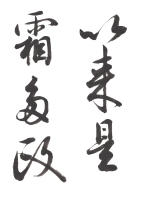 以来星
霜多改